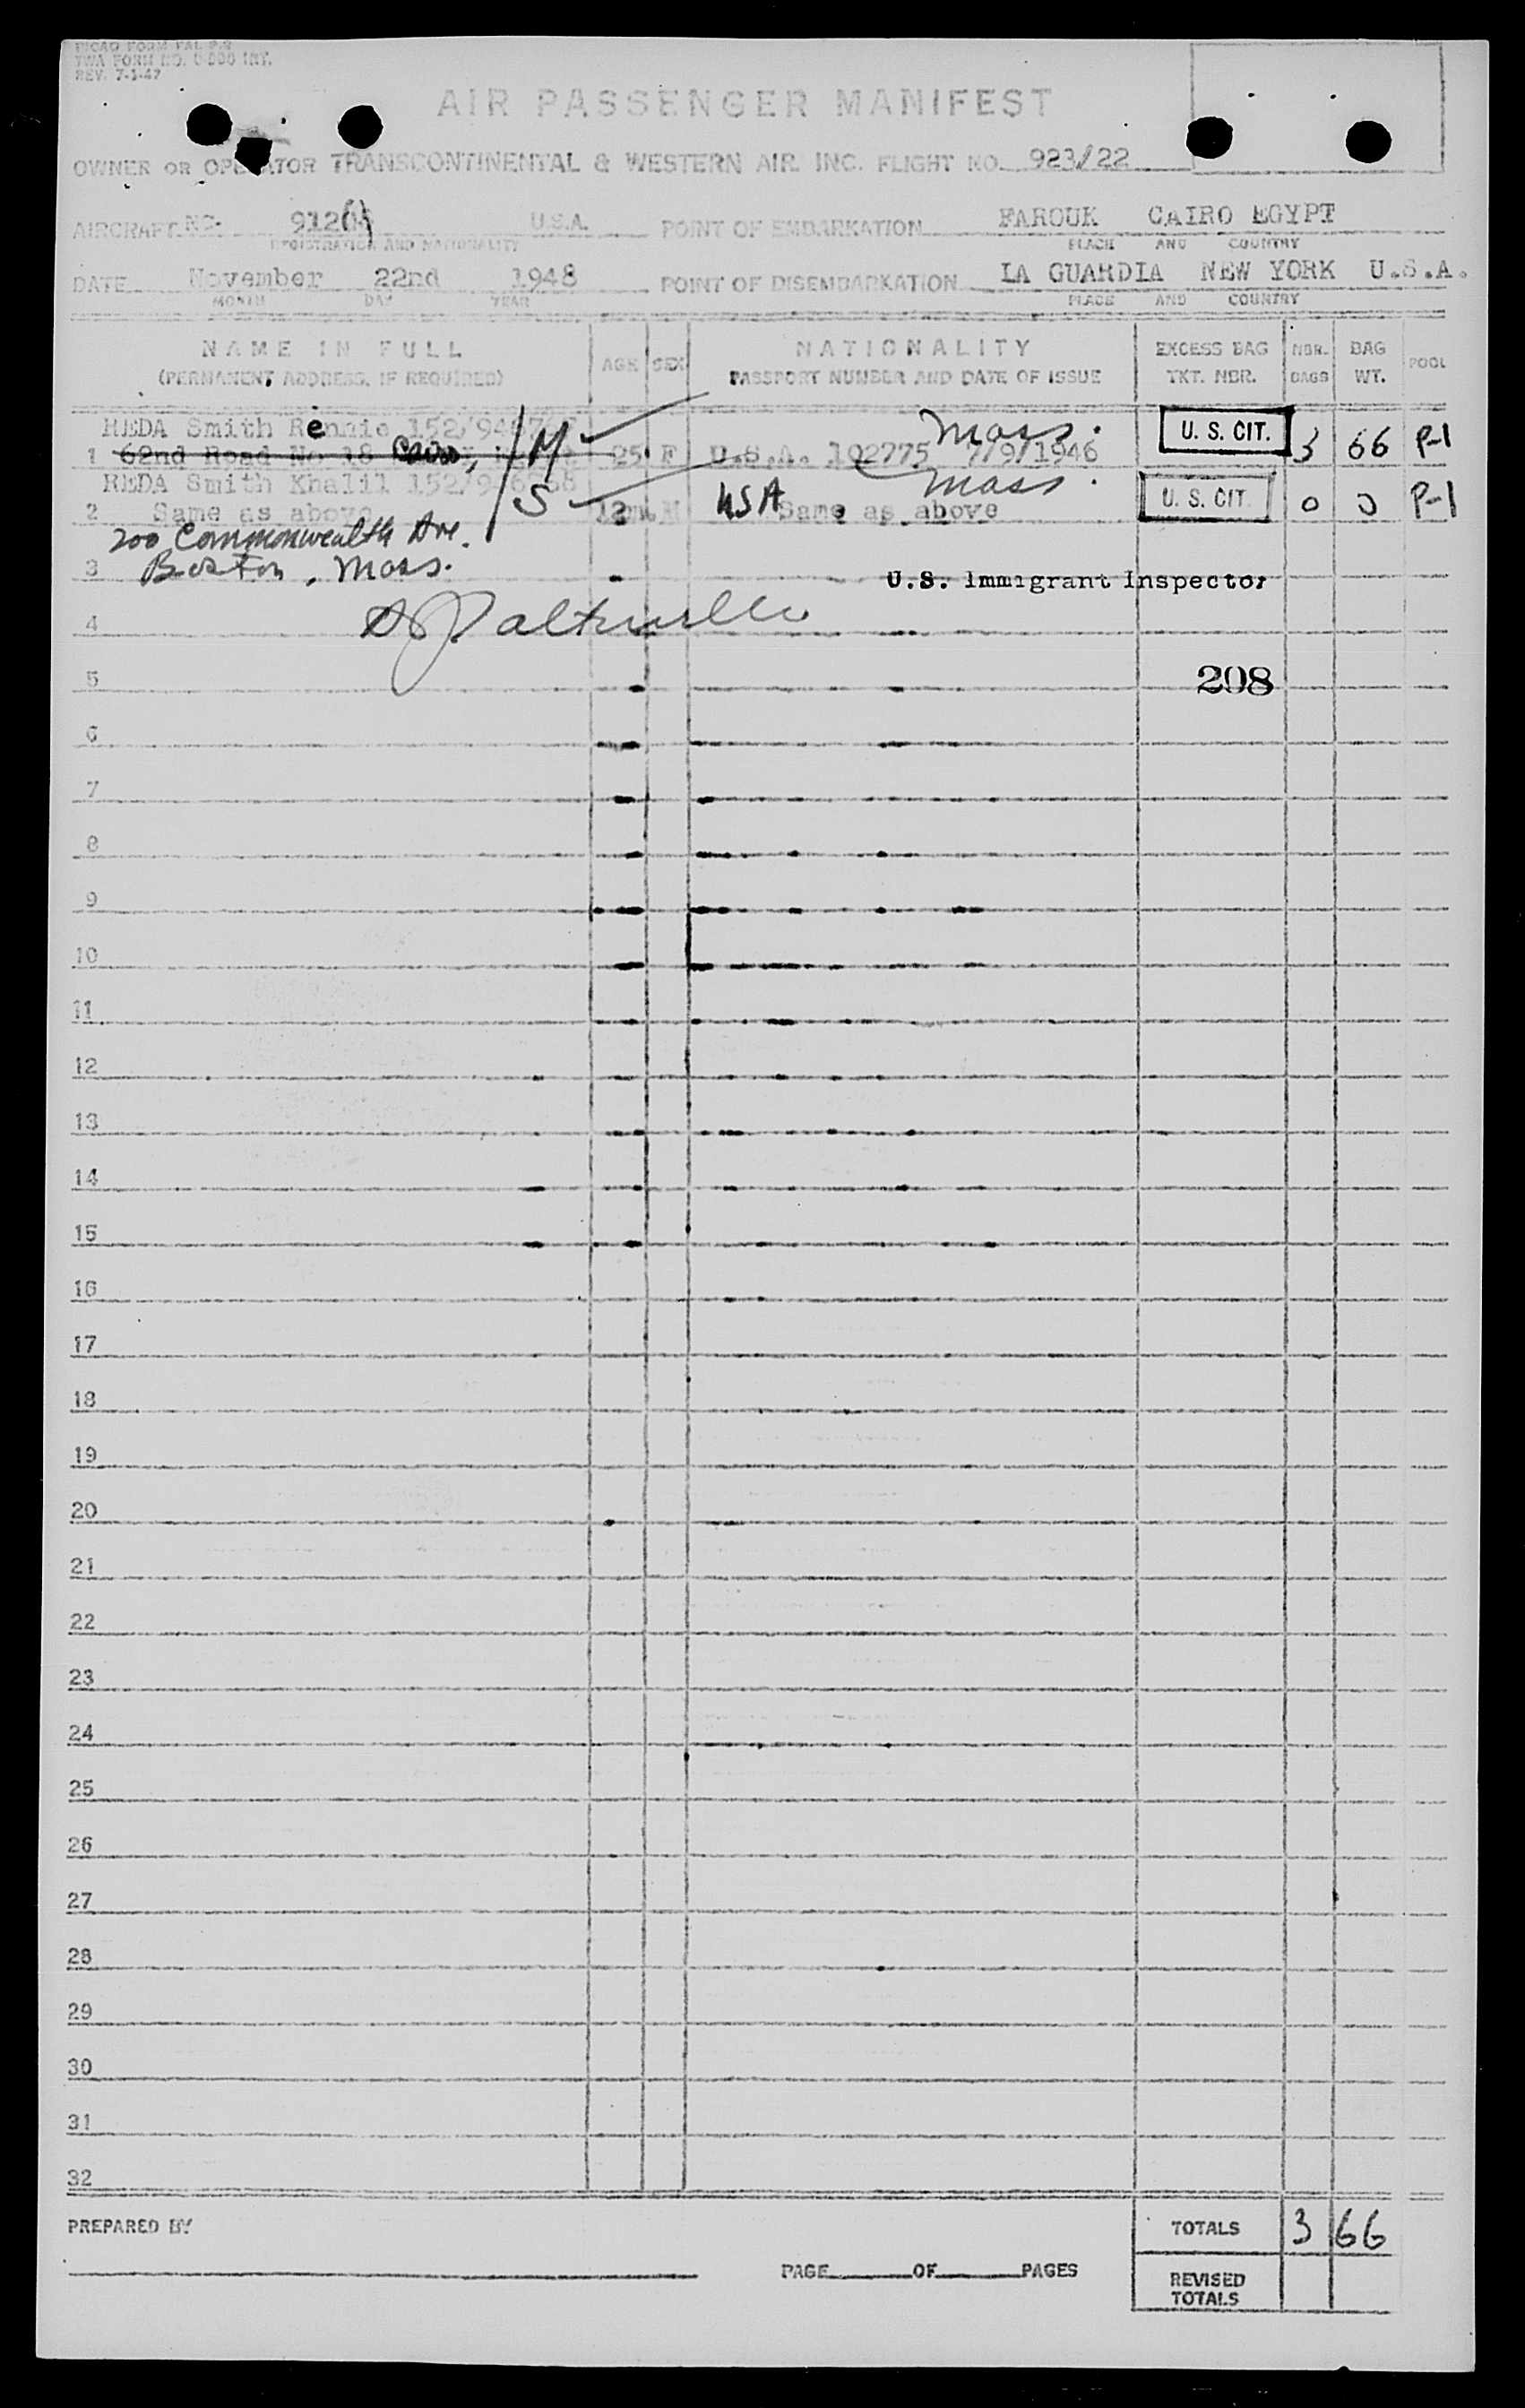 PICAO FORM FAL P.2
TWA FORM NO. O-500 INT.
REV. 7-1-47
AIR PASSENGER MANIFEST
OWNER OR OPERATOR TRANSCONTINENTAL & WESTERN AIR. INC. FLIGHT NO. 923/22
AIRCRAFT NO. U.S.A. POINT OF EMBARKATION FAROUK CAIRO EGYPT
REGISTRATION AND NATIONALITY PLACE AND COUNTRY
DATE November 22nd 1948 POINT OF DISEMBARKATION LA GUARDIA NEW YORK U.S.A.
MONTH DAY YEAR PLACE AND COUNTRY
NAME IN FULL AGE SEX NATIONALITY EXCESS BAG NBR. BAG POOL
(PERMANENT ADDRESS, IF REQUIRED) PASSPORT NUMBER AND DATE OF ISSUE TKT. NBR. BAGS WT.
REDA Smith Rennie Mass.
1 62nd Road No 18 Cairo, M 25 F U.S.A. 102775 7/9/1946 U. S. CIT. 3 66 P-1
REDA Smith Khalil S Mass.
2 Same as above M USA Same as above U. S. CIT. 0 0 P-1
200 Commonwealth Ave.
3 Boston, Mass. U.S. Immigrant Inspector
4
5 208
6
7
8
9
10
11
12
13
14
15
16
17
18
19
20
21
22
23
24
25
26
27
28
29
30
31
32
PREPARED BY TOTALS 3 66
PAGE OF PAGES REVISED
TOTALS